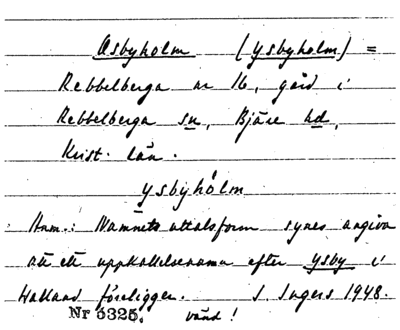 Åsbyholm (Ysbyholm) =
Rebbelberga nr 16, gård i
Rebbelberga sn, Bjäre hd,
Krist. län.
ysbyhölm
Anm.: Namnets uttalsform synes angiva
att ett uppkallelsenamn efter Ysby i
Halland föreligger. I Ingers 1948.
Nr 5325. vänd!